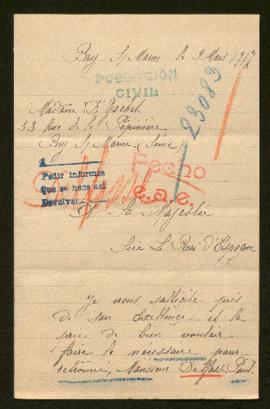 Bry S/ Marne le 9 Mars 1917
POBLACIÓN
CIVIL
23089
Madame
33 Rue de la Pépinière
Bry S/ Marne (Seine)
Pedir informes
Que se haga así
Devolver
A Sa Majestée
Sire Le Roi d'Espagne
Je vous sollicite
de son excellence et la
de bien vouloir
faire le nécessaire pour
retrouver, Monsieur Paul